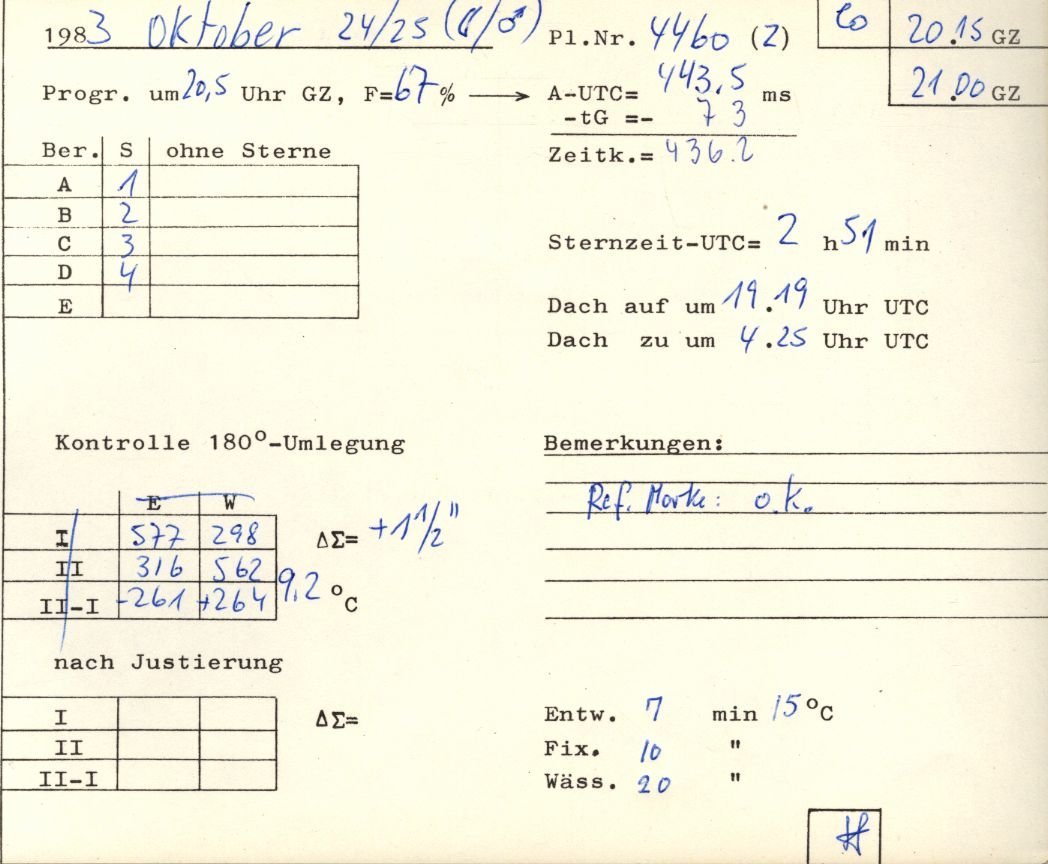 1983 Oktober 24/25 (☾/♂) Pl.Nr. 4460 (Z) Co 20.15 GZ
Progr. um 20,5 Uhr GZ, F=67% → A-UTC= 443,5 ms 21.00 GZ
-tG =- 7 3
Ber. S ohne Sterne Zeitk.= 436.2
A 1
B 2
C 3 Sternzeit-UTC= 2 h 51 min
D 4
E Dach auf um 19.19 Uhr UTC
Dach zu um 4.25 Uhr UTC
Kontrolle 180°-Umlegung Bemerkungen:
E W Ref. Marke: o.k.
I 577 298 ΔΣ= +1 1/2"
II 316 562
II-I -261 +264 9,2 °C
nach Justierung
I ΔΣ= Entw. 7 min 15 °C
II Fix. 10 "
II-I Wäss. 20 "